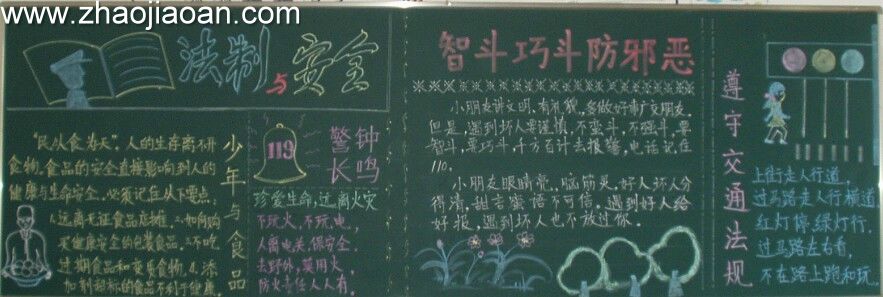 www.zhaojiaoan.com
法制与安全
少年与食品
"民以食为天",人的生存离不开
食物,食品的安全直接影响到人的
健康与生命安全,必须记住以下要点:
1.远离无证食品店摊,二.如何购
买健康安全的包装食品,三.不吃
过期食品和变质食物,4.添
加剂超标的食品不利于健康.
119
警钟
长鸣
珍爱生命,远离火灾
不玩火,不玩电,
人离电关,保安全.
去野外,莫用火,
防火责任人人有.
智斗巧斗防邪恶
小朋友讲文明,有礼貌,多做好事广交朋友,
但是,遇到坏人要谨慎,不蛮斗,不强斗,要
智斗,要巧斗,千方百计去报警,电话记住
110.
小朋友眼睛亮,脑筋灵,好人坏人分
得清,甜言蜜语不可信,遇到好人给
好报,遇到坏人也不放过你.
遵守交通法规
上街走人行道,
过马路走人行横道
红灯停,绿灯行.
过马路左右看,
不在路上跑和玩.